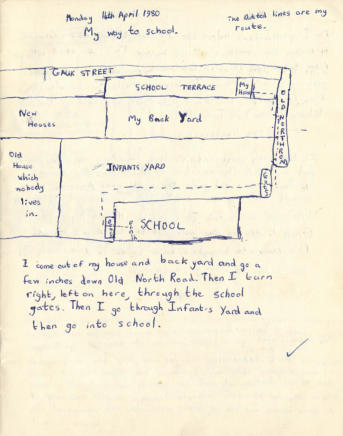 Monday 14th April 1980
The dotted lines are my
route.
My way to school.
GAUK STREET
SCHOOL TERRACE
My
House
OLD NORTH ROAD
New
Houses
My Back Yard
Old
House
which
nobody
lives
in.
INFANTS YARD
SCHOOL
I come out of my house and back yard and go a
few inches down Old North Road. Then I turn
right, left on here, through the school
gates. Then I go through Infants Yard and
then go into school.